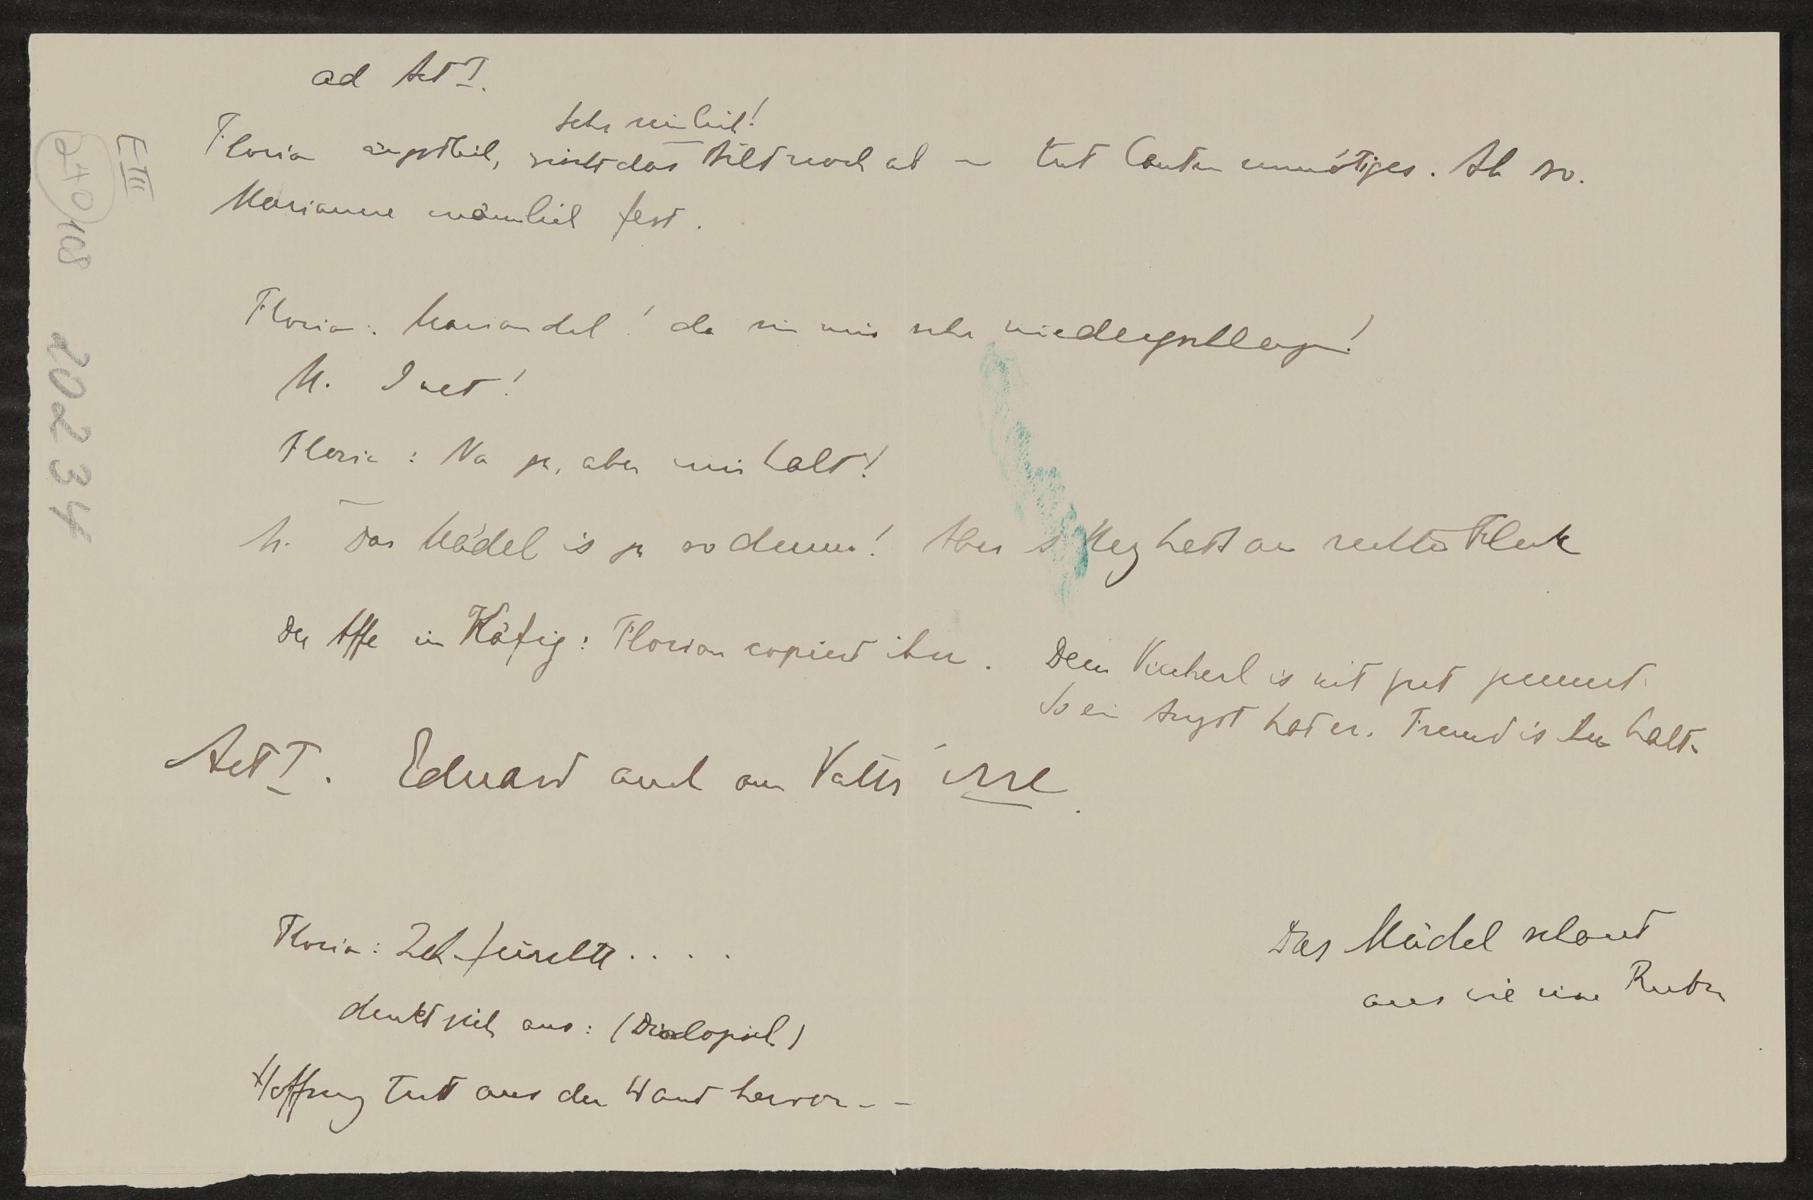 ad Act I.
sehr peinlich!
Florian ängstlich, das Bild noch ab – tut lauter unnötiges. Ah so.
Marianne männlich fest.
Florian: Mariandel! da sin mir sehr niedergschlagen!
M. I net!
Florian: Na ja, aber mir halt!
M. Das Mädel is ja so dumm! Aber 's Herz hat s' am rechten Fleck
Der Affe im Käfig: Florian copiert ihn.
Dem Viecherl is nit gut
So ein Angst hat er. Fremd is ihm halt.
Act I. Eduard auch am Vater irre.
Florian: Ich fürchte . . . .
denkt sich aus: (Dialogisch)
Hoffnung tritt aus der Wand hervor - -
Das Mädel schaut
aus wie eine
E III
240/108
20234